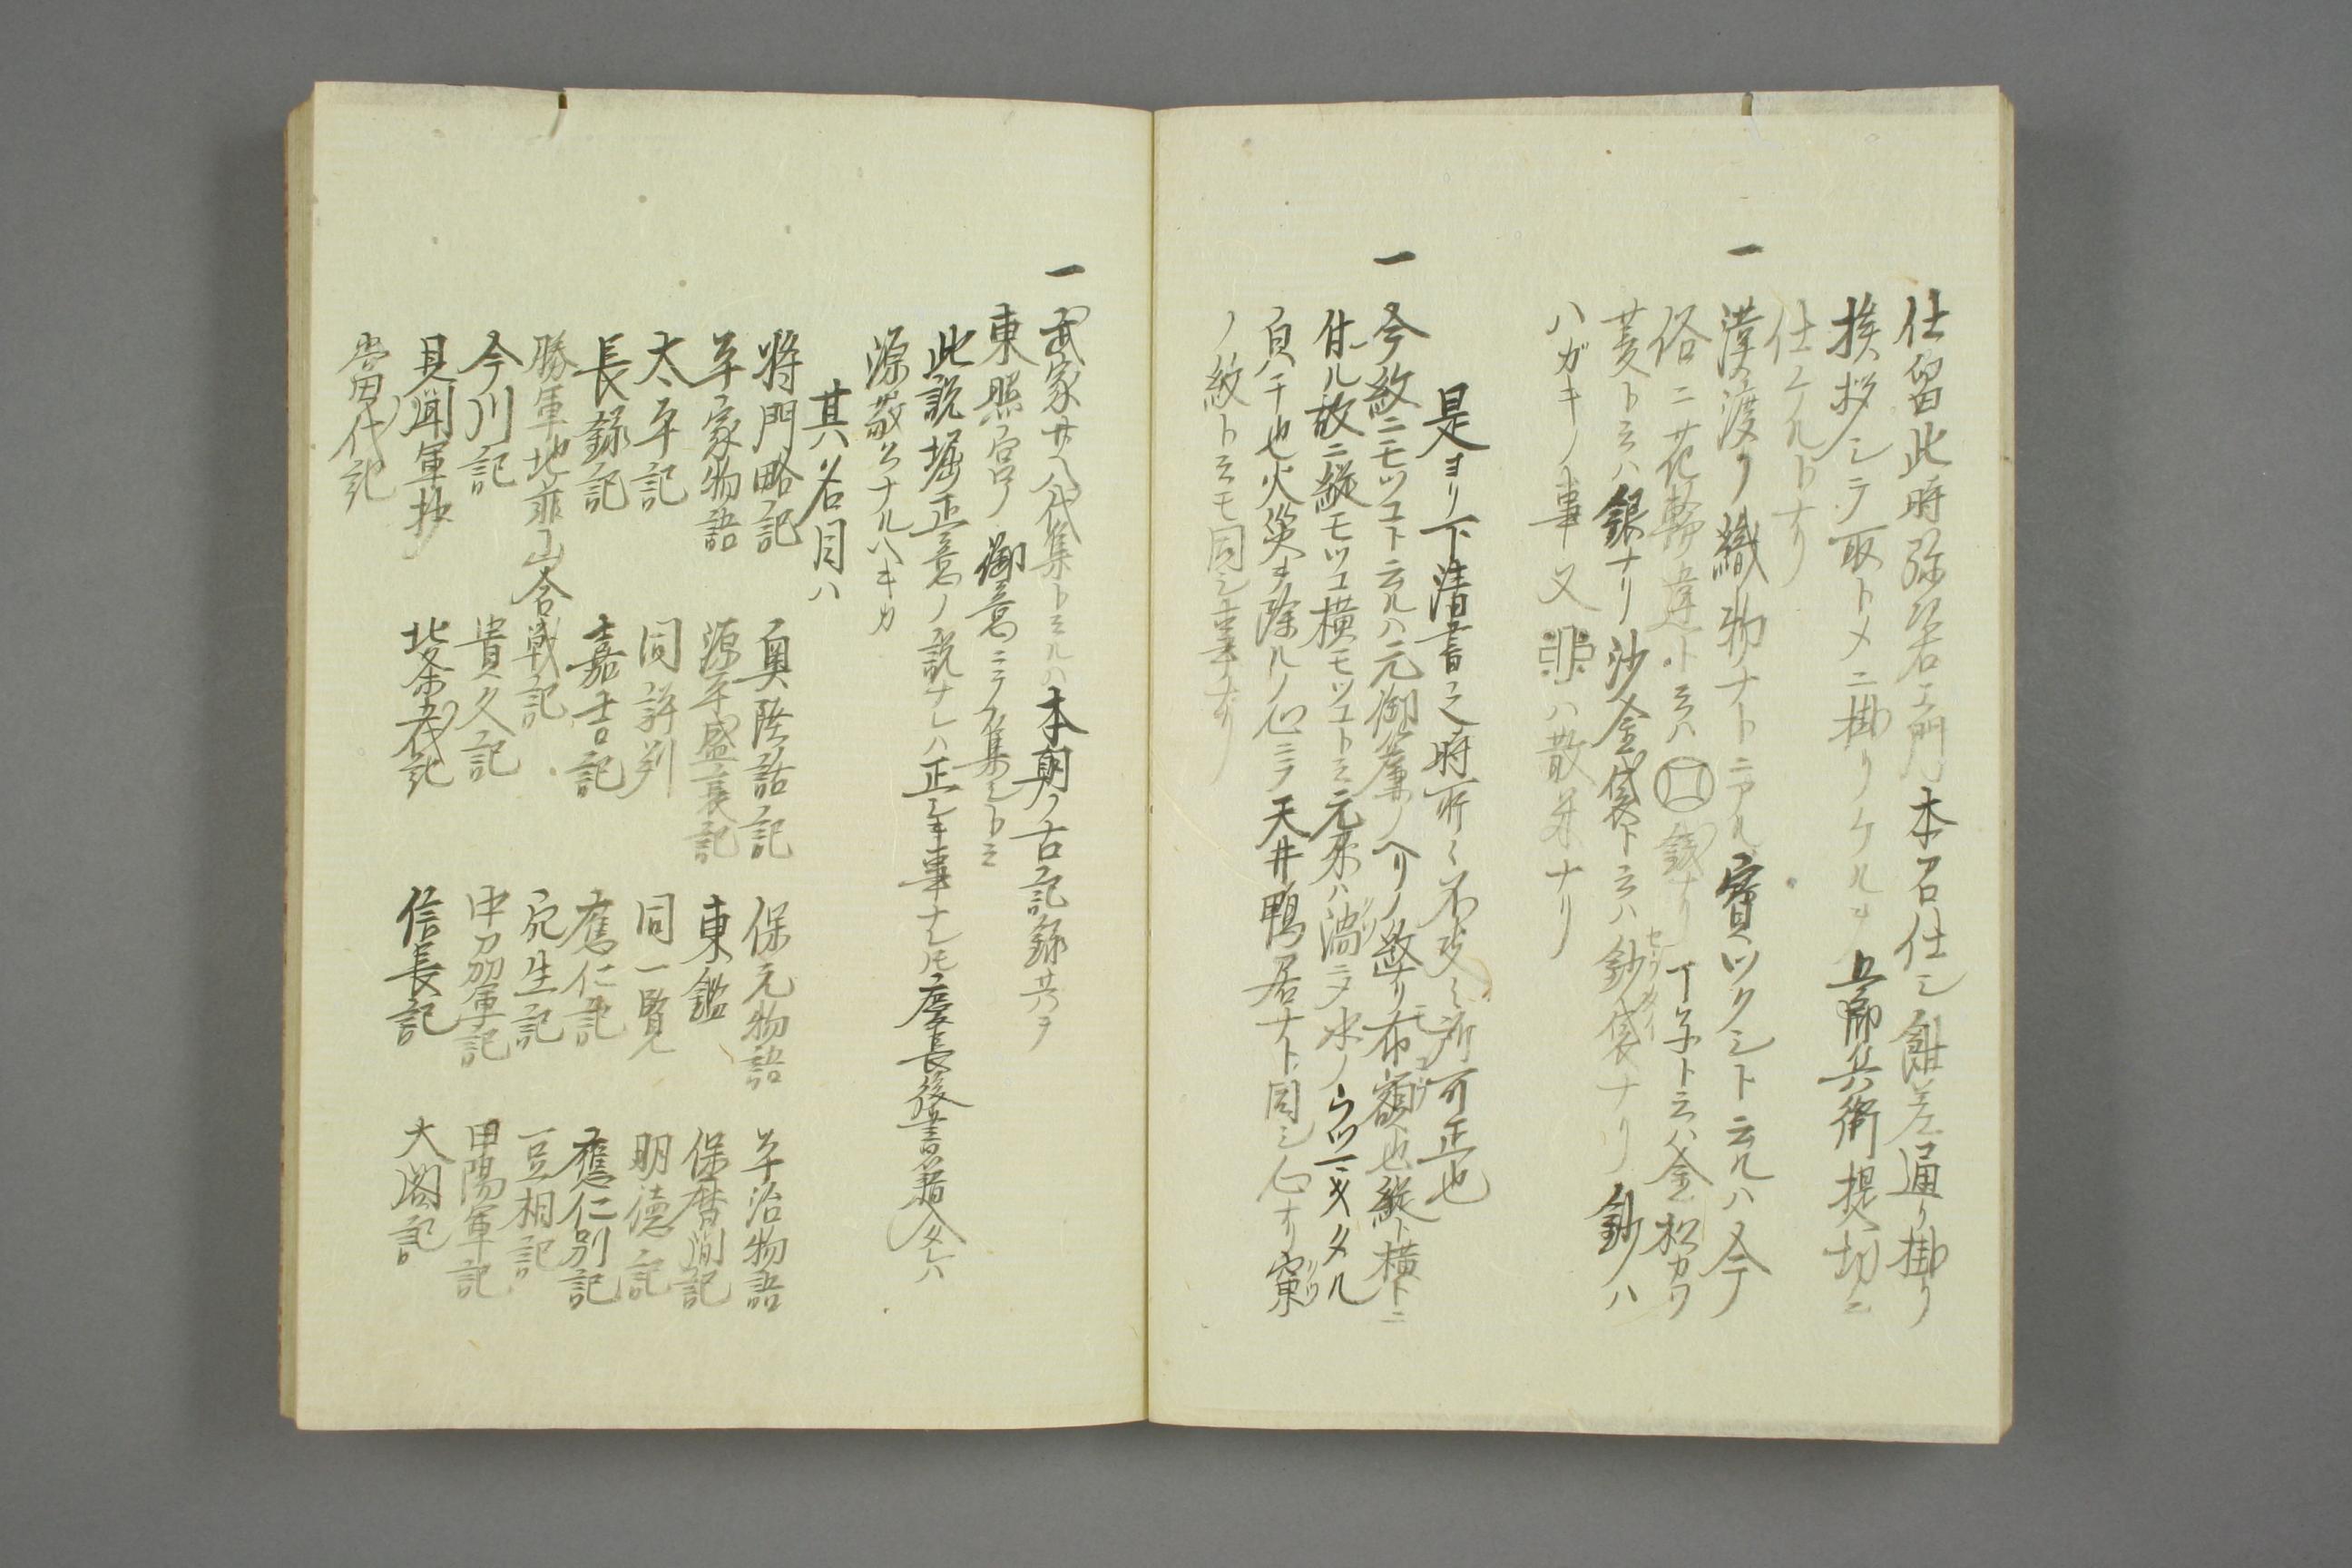 仕留此時弥右エ門本召仕シ雛差通り掛り
挨拶シテ取トメニ掛リケルヲ丘郎兵衛提切ニ
仕ケルトナリ
一 漢渡リ織物ナトニアル寳ツクシト云ルハ今
俗ニ花輪違ト云ハ銭ナリ丁子ト云ハ釜松カワ
菱ト云ハ銀ナリ沙金袋ト云ハ鈔袋ナリ鈔ハ
ハガキノ事又ハ散米ナリ
是ヨリ下清書之時所々不改之所可正也
一 今紋ニモツコト云ルハ元御簾ノヘリノ紋ナリ布額也縦ト横トニ
付ル故ニ縦モツコ横モツコト云元来ハ渦ニテ水ノウツマキタル
貞ハチ也火災ヲ除ルノ心ニテ天井鴨居ナト同シ心ナリ窠
ノ紋ト云モ同シ事ナリ
一 武家廿八代集ト云ルハ本朝ノ古記録共ヲ
東照宮ノ 御意ニテ集シト云
此説堀正意ノ説ナレハ正シキ事ナレ𪜈慶長後書籍入タレハ
源敬公ナルヘキカ
其名目ハ
将門略記 奥陸話記 保元物語 平治物語
平家物語 源平盛衰記 東鑑 保暦間記
太平記 同評判 同一覧 明徳記
長録記 嘉吉記 應仁記 應仁別記
勝軍地蔵山合戦記 宛生記 豆相記
今川記 貴久記 中刀加軍記 甲陽軍記
見聞軍抄 北条五代記 信長記 大閤記
當代記